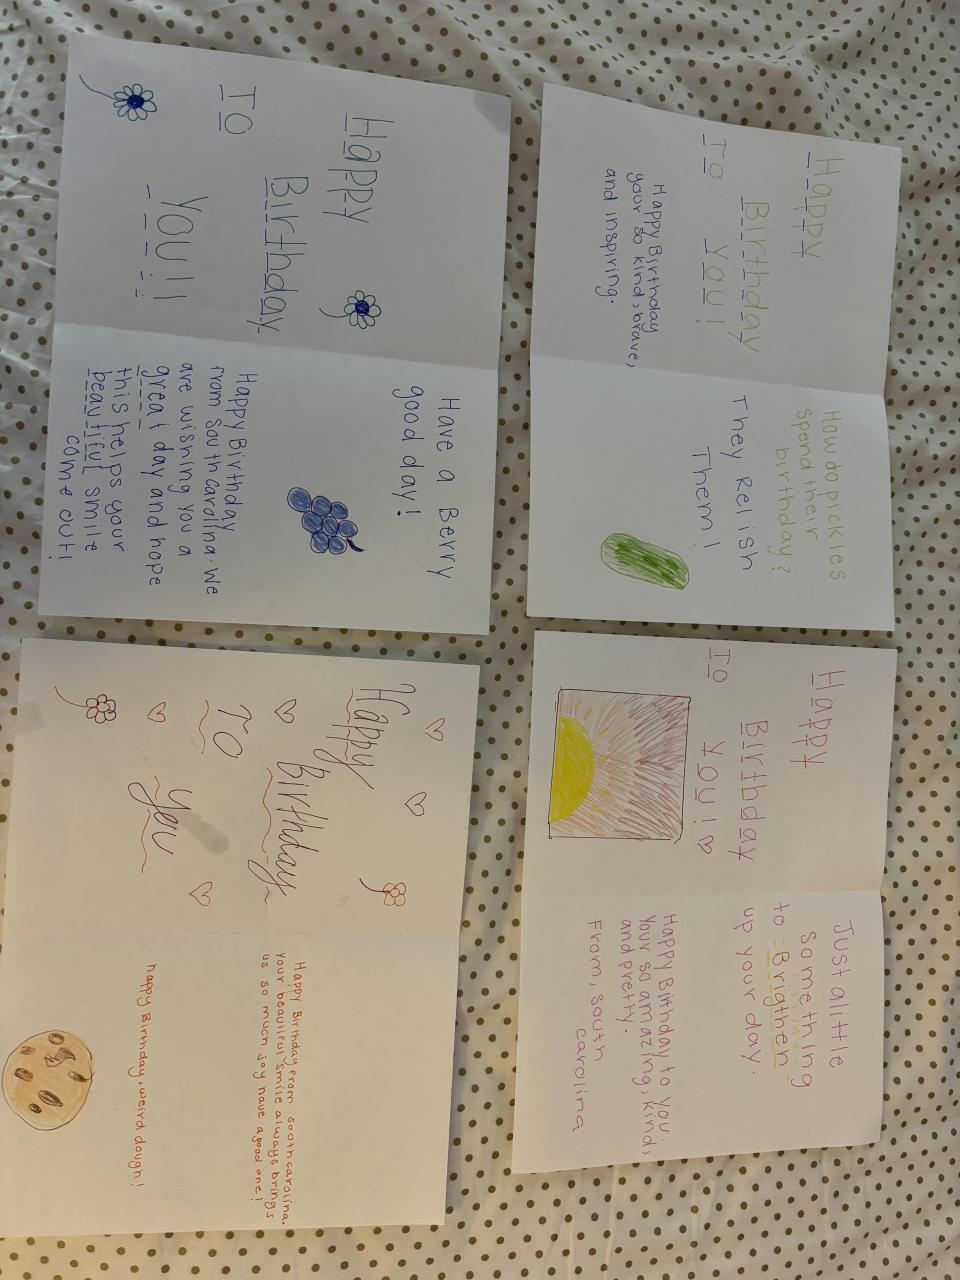 Happy
Birthday
To
You!
Happy Birthday
your so kind, brave,
and inspiring.
How do pickles
spend their
birthday?
They Relish
Them!
Happy
Birthday
To
You!
Just a little
something
to Brigthen
up your day.
Happy Birthday to you.
Your so amazing, kind,
and pretty.
From, South
carolina
Happy
Birthday
To
You!!
Have a Berry
good day!
Happy Birthday
from South carolina. We
are wishing you a
great day and hope
this helps your
beautiful smile
come out!
Happy
Birthday
To
You
Happy Birthday from south carolina.
your beautiful smile always brings
us so much joy have a good one!
happy Birthday, weird dough!